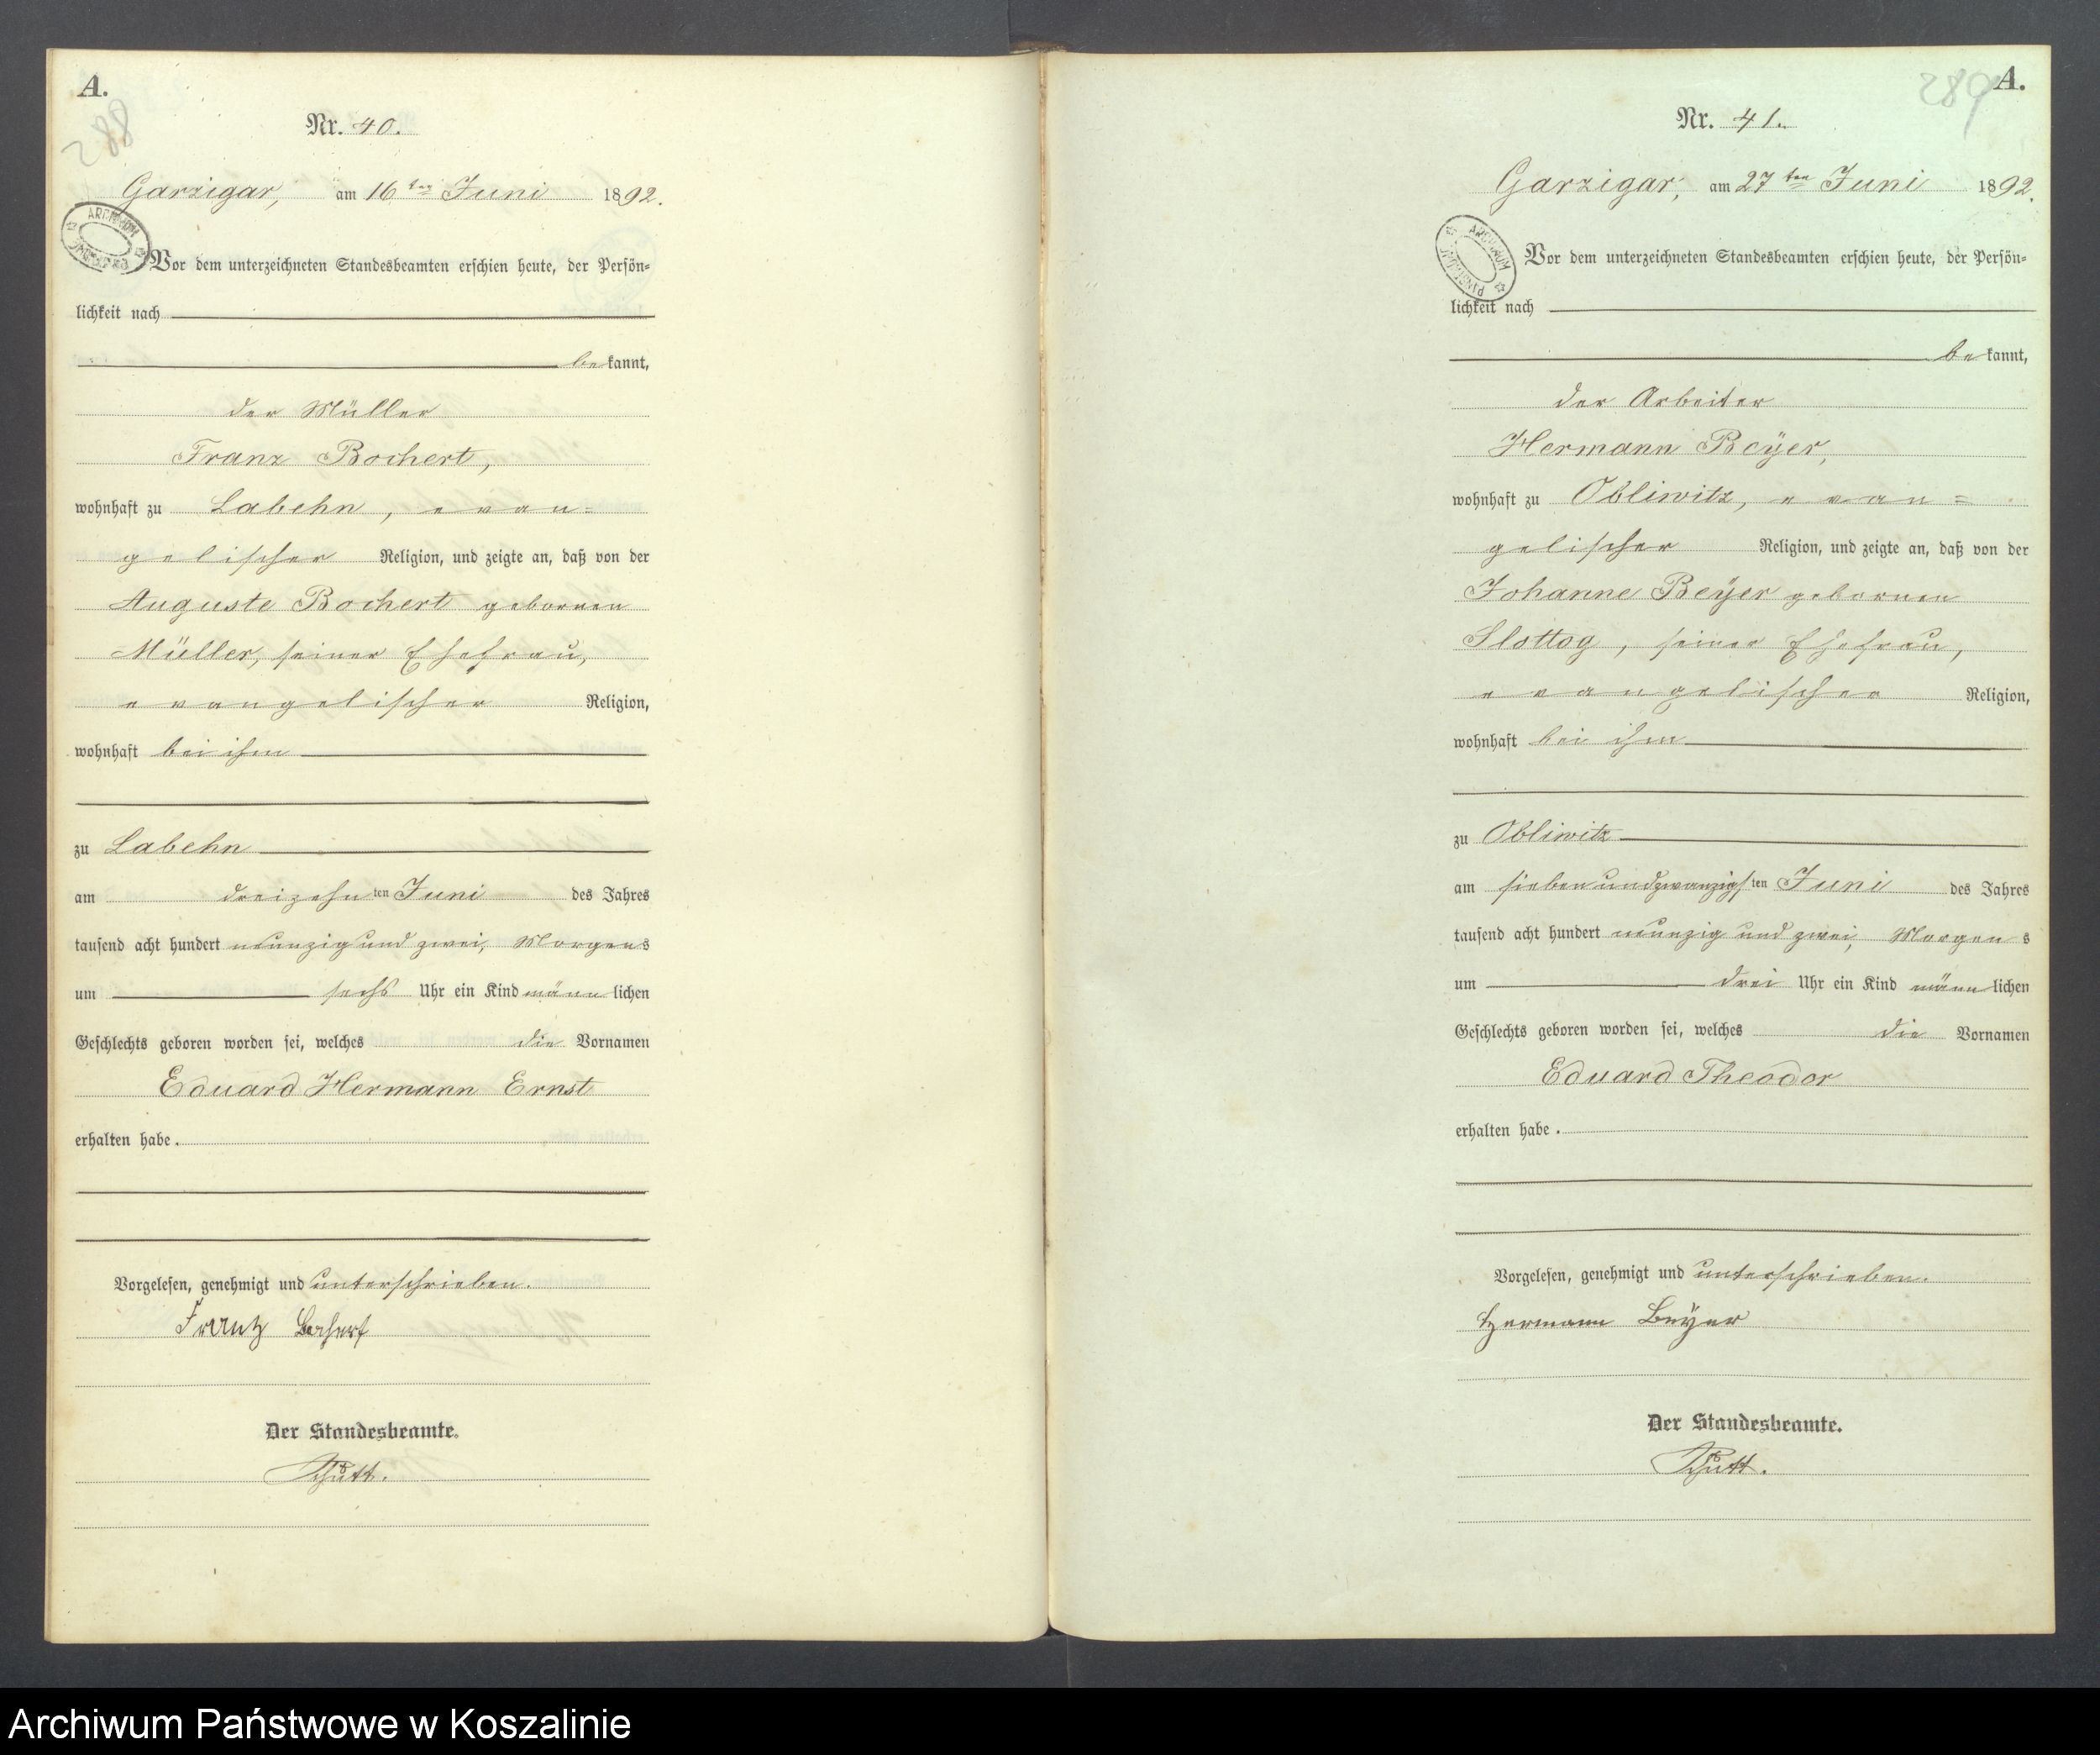 A.
288
Nr. 40.
Garzigar, am 16ten Juni 1892.
Vor dem unterzeichneten Standesbeamten erschien heute, der Persön=
lichkeit nach
bekannt,
der Müller
Franz Bochert,
wohnhaft zu Labehn, evan=
gelischer Religion, und zeigte an, daß von der
Auguste Bochert gebornen
Müller, seiner Ehefrau,
evangelischer Religion,
wohnhaft bei ihm
zu Labehn
am dreizehnten Juni des Jahres
tausend acht hundert neunzig und zwei, Morgens
um sechs Uhr ein Kind männlichen
Geschlechts geboren worden sei, welches die Vornamen
Eduard Hermann Ernst
erhalten habe.
Vorgelesen, genehmigt und unterschrieben.
Frantz Bochert
Der Standesbeamte.
Schütt.
A.
289
Nr. 41.
Garzigar, am 27ten Juni 1892.
Vor dem unterzeichneten Standesbeamten erschien heute, der Persön=
lichkeit nach
bekannt,
der Arbeiter
Hermann Beÿer,
wohnhaft zu Obliwitz, evan=
gelischer Religion, und zeigte an, daß von der
Johanne Beÿer gebornen
Slottog, seiner Ehefrau,
evangelischer Religion,
wohnhaft bei ihm
zu Obliwitz
am siebenundzwanzigsten Juni des Jahres
tausend acht hundert neunzig und zwei, Morgens
um drei Uhr ein Kind männlichen
Geschlechts geboren worden sei, welches die Vornamen
Eduard Theodor
erhalten habe.
Vorgelesen, genehmigt und unterschrieben.
Hermann Beÿer
Der Standesbeamte.
Schütt.
Archiwum Państwowe w Koszalinie